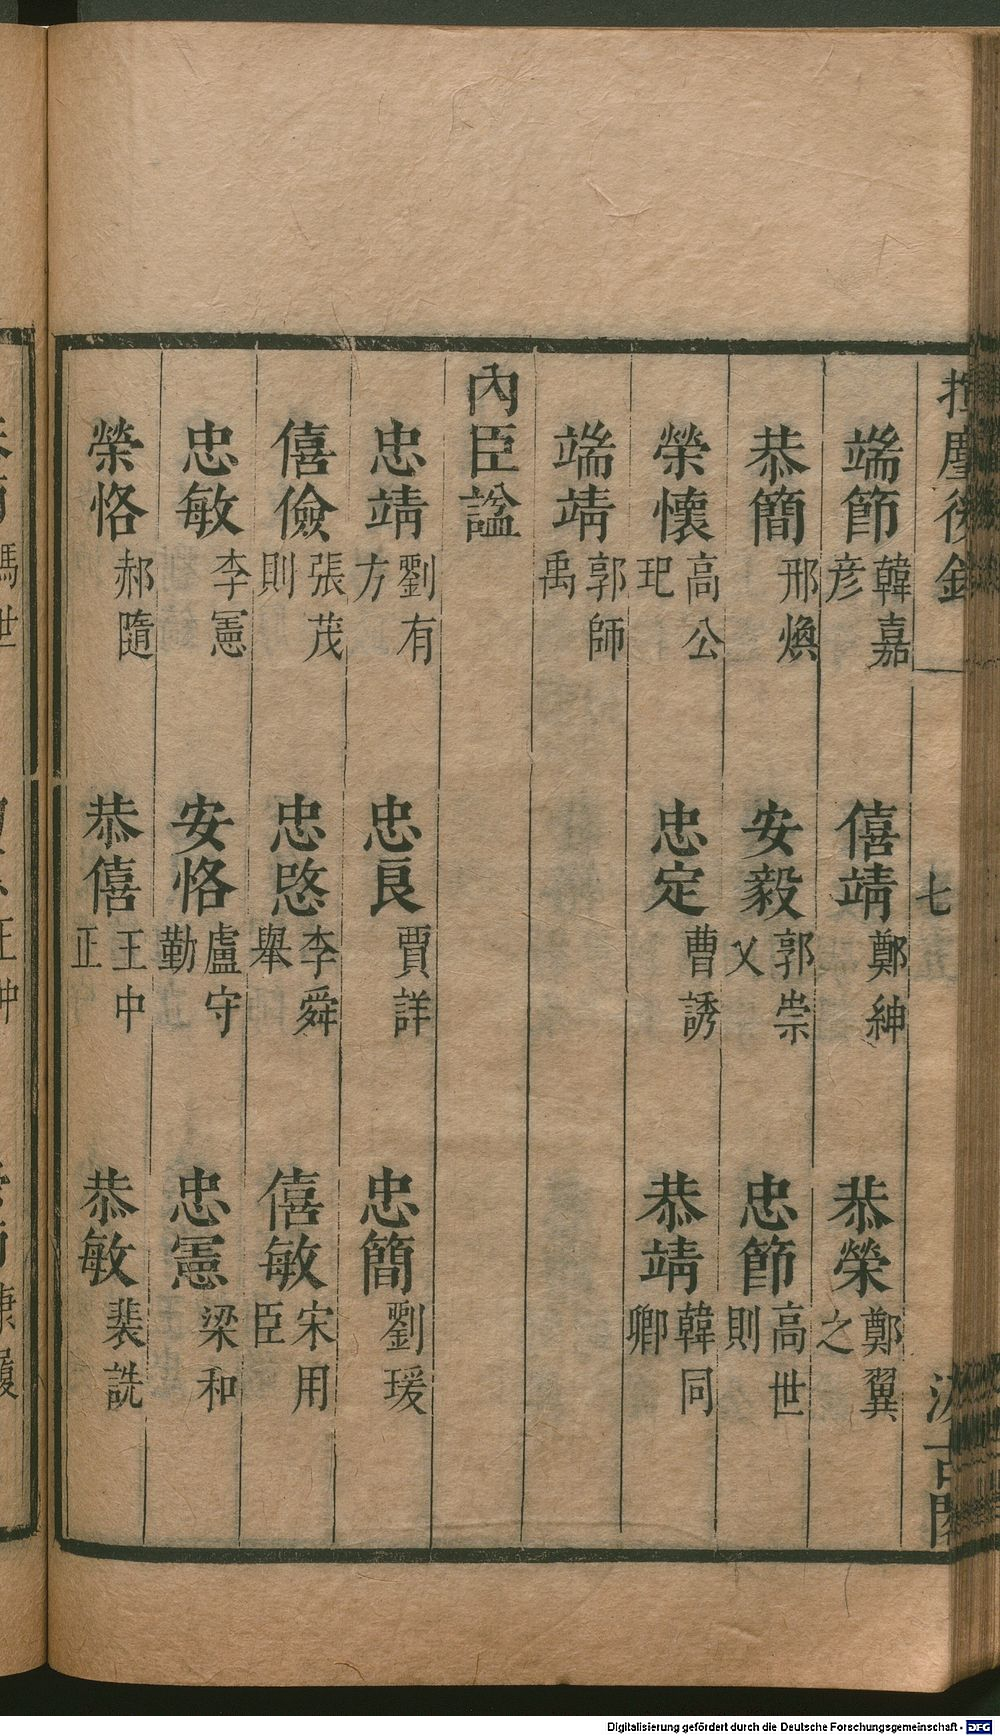 揮麈後錄
七
汲古閣
端節 韓嘉彥 僖靖 鄭紳 恭榮 鄭翼之
恭簡 邢煥 安毅 郭崇乂 忠節 高世則
榮懷 高公𥘉 忠定 曹誘 恭靖 韓同卿
端靖 郭師禹
內臣諡
忠靖 劉有方 忠良 賈詳 忠簡 劉瑗
僖儉 張茂則 忠愍 李舜舉 僖敏 宋用臣
忠敏 李憲 安恪 盧守勤 忠憲 梁和
榮恪 郝隨 恭僖 王中正 恭敏 裴詵
Digitalisierung gefördert durch die Deutsche Forschungsgemeinschaft - DFG